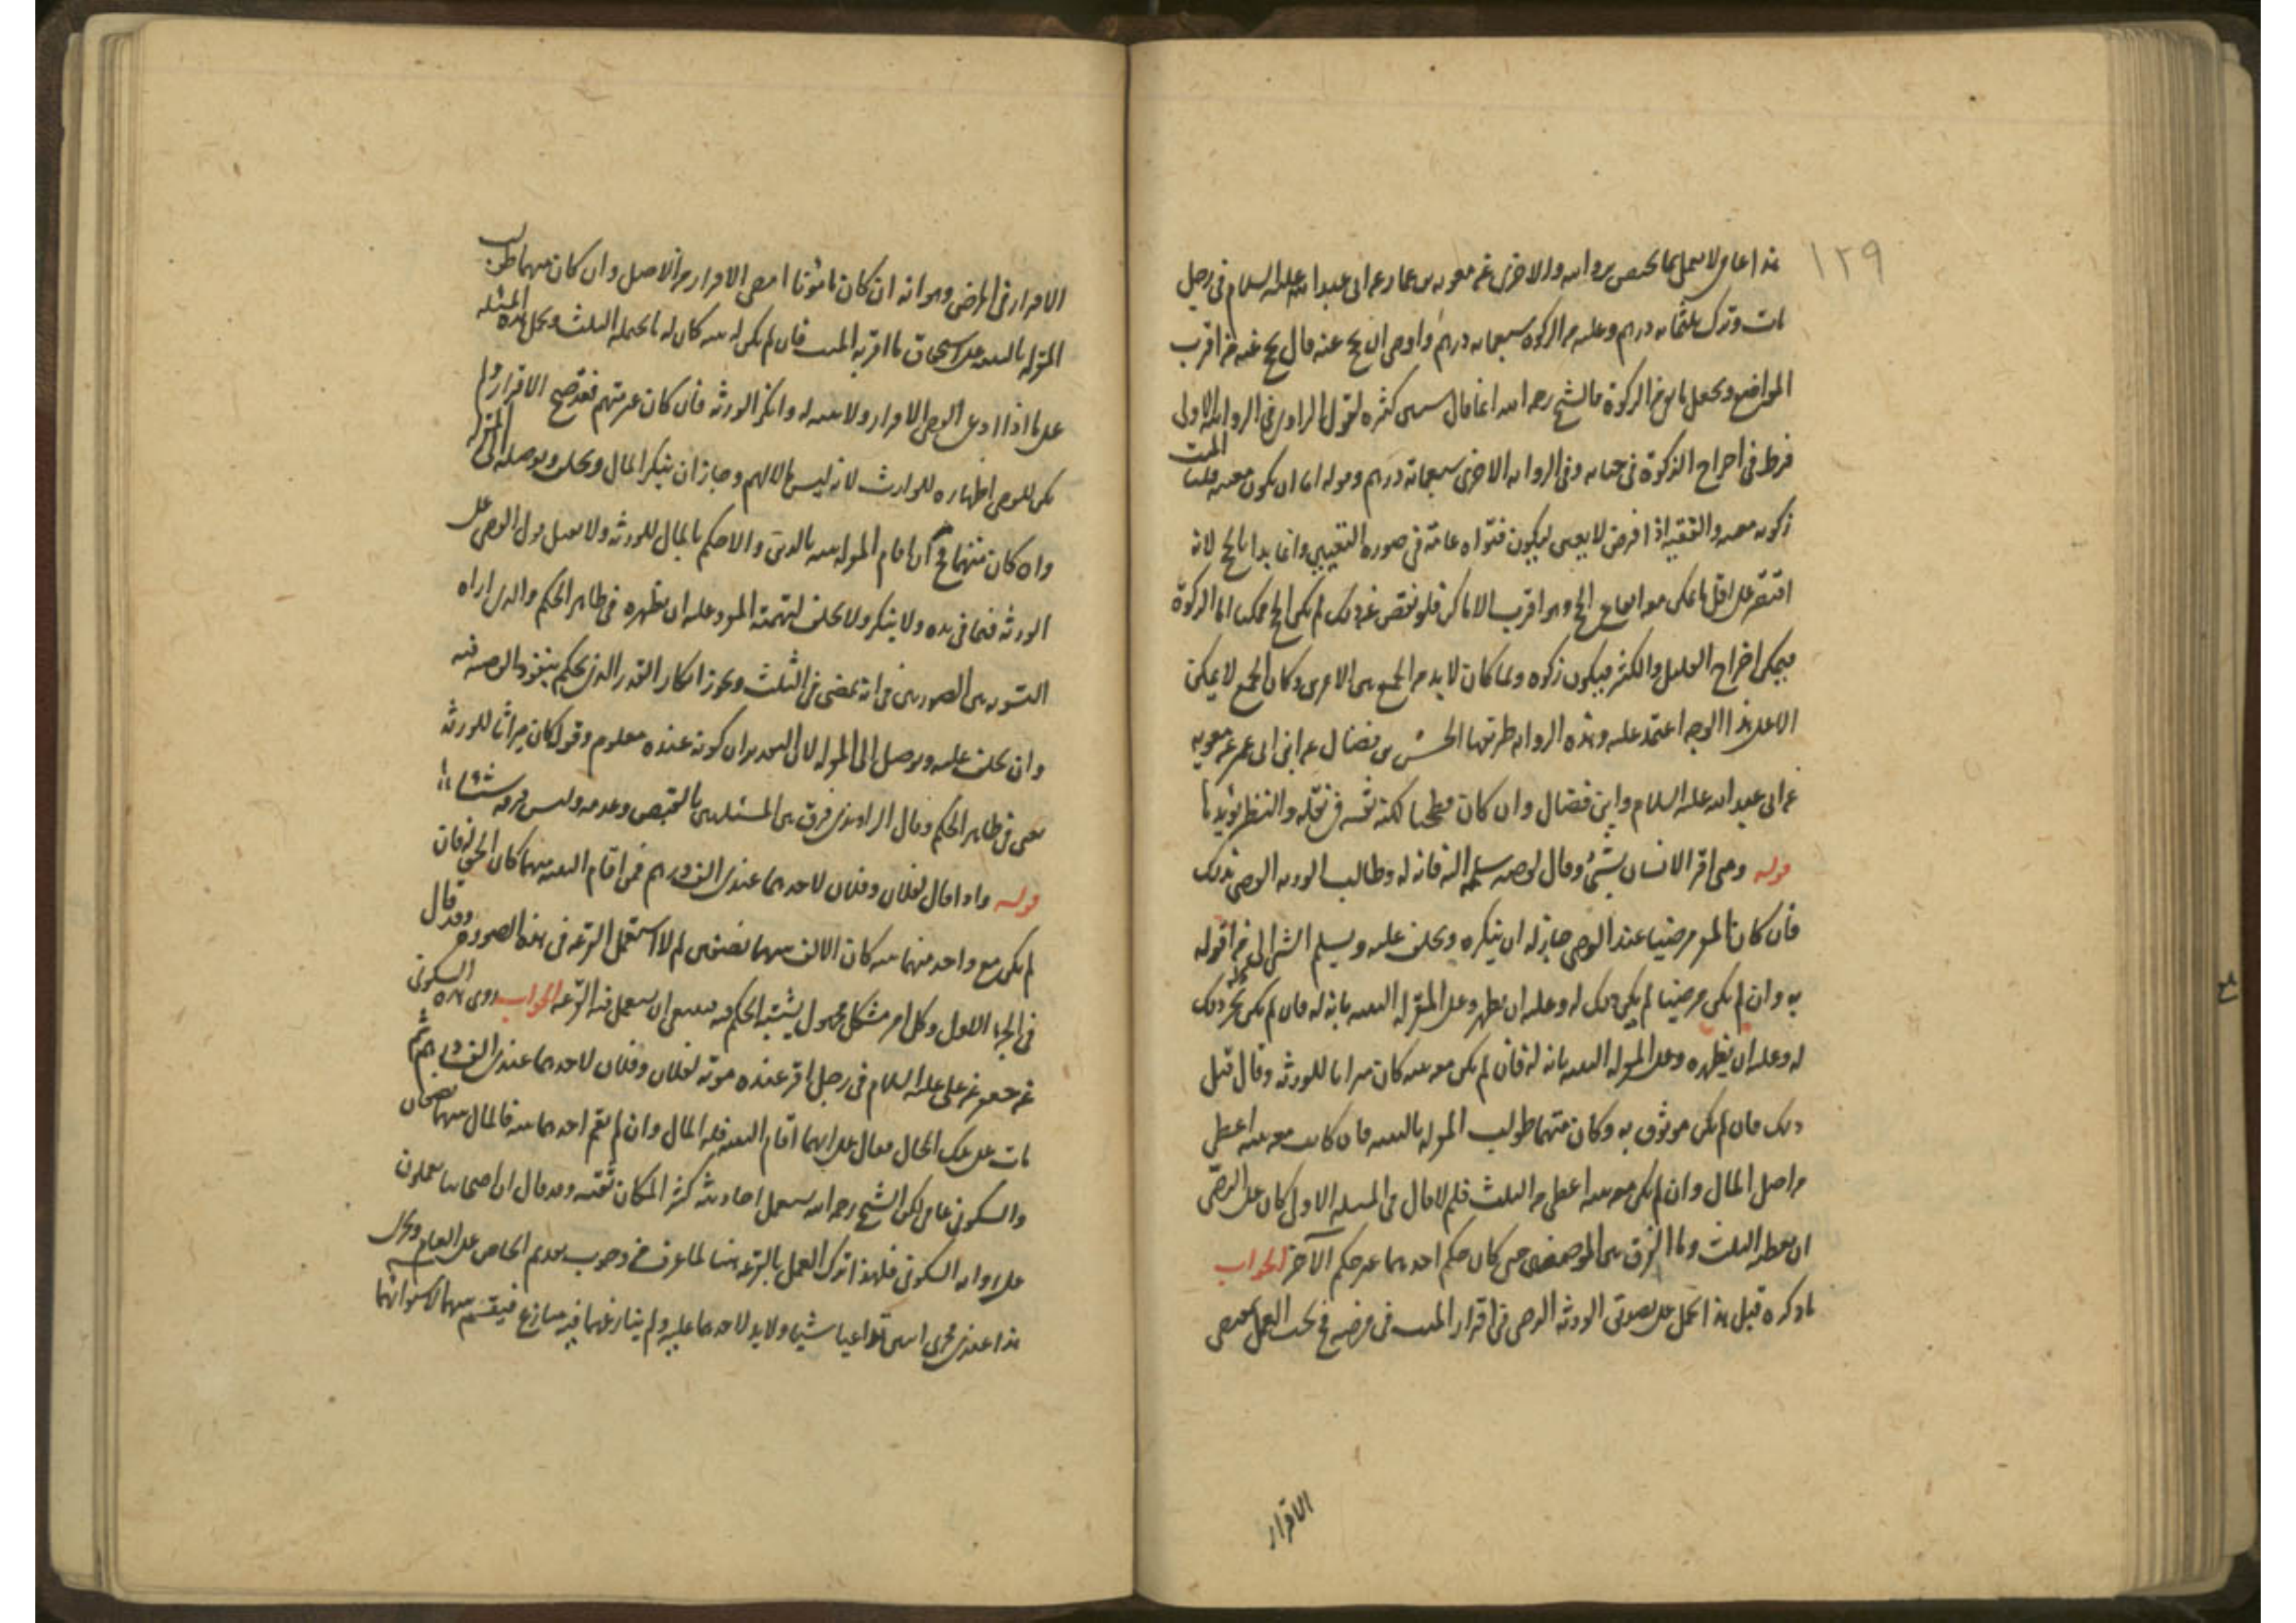 ١٢٩
هذا عامى لا يعمل بما يختص بروايته والاخرى عن معوية بن عمار عن ابى عبد الله عليه السلام فى رجل
مات وترك ثلثمائه درهم وعليه من الزكوة سبعمايه درهم واوصى ان يحج عنه قال يحج عنه من اقرب
المواضع ويجعل ما بقى فى الزكوة فالشيخ رحمه الله انما قال شىء كثره لقول الراوى فى الروايه الاولى
فرط فى اخراج الزكوة فى حياته وفى الروايه الاخرى سبعمائة درهم وقوله اما ان يكون معينه فليست
زكوته معينه والفقيه اذا فرض لا يعين ليكون فتواه عامّة فى صوره التعيين وانما بدا بالحج لانه
اقتصر على اقل ما يمكن معه ايقاع الحج وهو اقرب الاماكن فلو نقص عن ذلك لم يكن الحج ممكنا اما الزكوة
فيمكن اخراج القليل والكثير فيكون زكوه ولما كان لا بد من الجمع بين الامرين وكان الجمع لا يمكن
الا على هذا الوجه اعتمد عليه وهذه الروايه طريقها الحسن بن فضال عن ابن ابى عمير عن معويه
عن ابى عبد الله عليه السلام وابن فضال وان كان فطحيا لكنه ثقه فى نقله والنظر يؤيدها
قوله ومتى اقر الانسان بشئ وقال لوصيه سلمه اليه فانه له وطالب الورثه الوصى بذلك
فان كان المقر مرضيا عند الوصى جاز له ان ينكره ويحلف عليه ويسلم الشئ الى من اقر له
به وان لم يكن مرضيا لم يكن ذلك له وعليه ان يظهره وعلى المقرّ له البينه بانه له فان لم يكن يجز ذلك
له وعليه ان يظهره وعلى المقر له البينه بانه له فان لم يكن معه بينه كان ميراثا للورثه وقال قبل
ذلك فان لم يكن موثوق به وكان متهما طولب المقر له بالبينه فان كانت معه بينه اعطى
من اصل المال وان لم يكن معه بينه اعطى من الثلث فلم لا قال فى المسئله الاولى كان على الوصى
ان يعطيه الثلث وما الفرق بين الموضعين حتى كان حكم احدهما غير حكم الآخر الجواب
ما ذكره قبل هذا يحمل على تصديق الورثه الوصى فى اقرار الميت فى مرضه فح يجب العمل بمقتضى
الاقرار
الاقرار فى المرض وهو انه ان كان مأمونا امضى الاقرار من الاصل وان كان متهما طولب
المقر له بالبينه على استحقاق ما اقر به الميت فان لم يكن له بينه كان له ما يحمله الثلث ويحمل هذه المسئله
على ما اذا ادعى الوصى الاقرار ولا بينه له وانكر الورثه فان كان غير متهم فقد صح الاقرار ولم
يكن للوصى اظهاره للوارث لانه ليس مالا لهم وجاز ان ينكر المال ويحلف ويوصله الى المقر له
وان كان متهما فح ان اقام المقر له بينه بالدين والا حكم بالمال للورثه ولا يقبل قول الوصى على
الورثه فيما فى يده ولا ينكر ولا يحلف لتهمته المقر وعليه ان يظهره فى ظاهر الحكم والذى اراه
التسويه بين الصورتين فى انه يمضى من الثلث ويجوز انكار القدر الذى يحكم بنفوذ الوصيه فيه
وان يحلف عليه ويوصل الى المقر له لا الى التقدير ان كونه عنده معلوم وقوله كان ميراثا للورثه
يعنى فى ظاهر الحكم وقال الراوندى فرق بين المسئلتين بالتخصيص وعدمه وليس فرقه شيئا
قوله واذا قال لفلان وفلان لاحدهما عندى الف درهم فمن اقام البينه منهما كان الحق له فان
لم يكن مع واحد منهما بينه كان الالف بينهما نصفين لم لا استعمل القرعه فى هذه الصوره وقد قال
فى الجزء الاول وكل امر مشكل مجهول يشتبه الحكم فيه فينبغى ان يستعمل فيه القرعه الجواب روى هذه السكونى
عن جعفر عن على عليه السلام فى رجل اقر عند موته لفلان وفلان لاحدهما عندى الف درهم ثم
مات على تلك الحال فقال على ايهما اقام البينه فله المال وان لم يقم احدهما بينه فالمال بينهما نصفان
والسكونى عامى لكن الشيخ رحمه الله يستعمل احاديثه كثيرا لمكان ثقته وقد قال ان اصحابنا يعملون
على رواية السكونى فلهذا ترك العمل بالقرعه هنا لما عرف من وجوب تقديم الخاص على العام ويجرى
هذا عندى مجرى اثنين تداعيا شيئا ولا يد لاحدهما عليه ولم ينازعهما فيه منازع فيقسم بينهما لاستوائهما